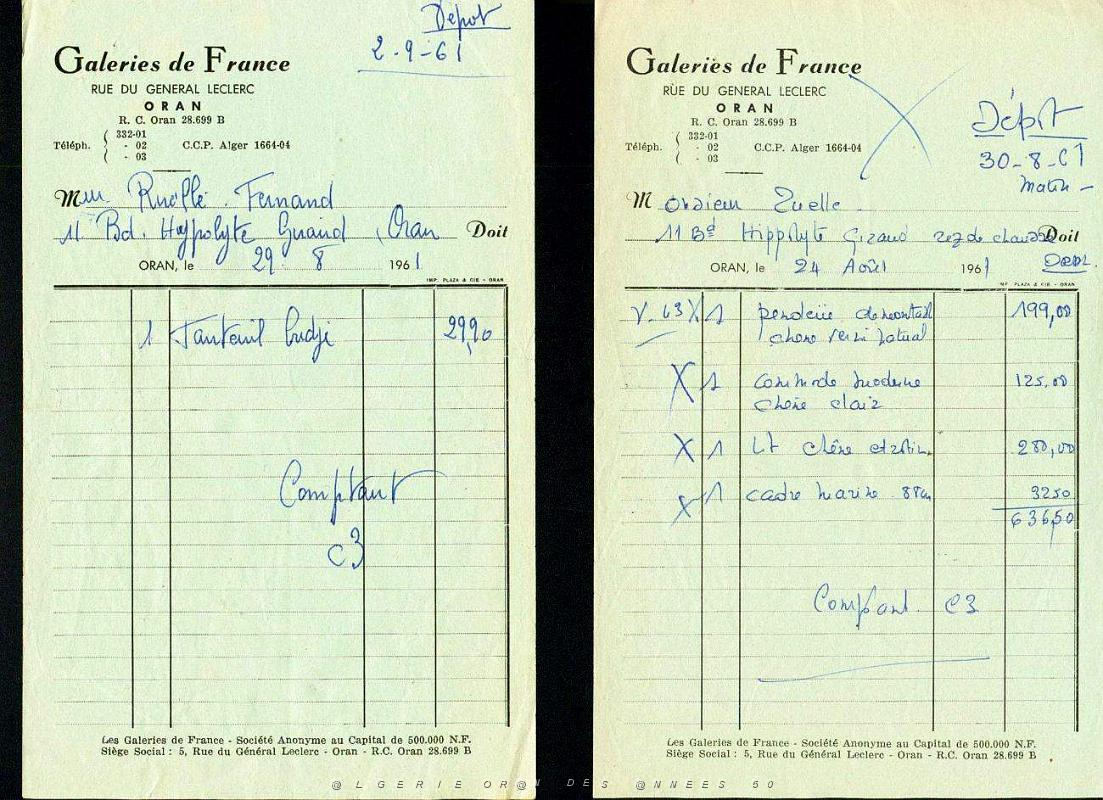 Dépot
2-9-61
Galeries de France
RUE DU GENERAL LECLERC
ORAN
R. C. Oran 28.699 B
332-01
Téléph. - 02 C.C.P. Alger 1664-04
- 03
Mme Ruelle Fernand
11 Bd. Hyppolyte Giraud, Oran Doit
ORAN, le 29 8 1961
IMP. PLAZA & CIE - ORAN
1 Fauteuil 29,90
Comptant
C3
Les Galeries de France - Société Anonyme au Capital de 500.000 N.F.
Siège Social : 5, Rue du Général Leclerc - Oran - R.C. Oran 28.699 B
Galeries de France
RUE DU GENERAL LECLERC
ORAN
R. C. Oran 28.699 B
332-01
Téléph. - 02 C.C.P. Alger 1664-04
- 03
Dépôt
30-8-61
Matin -
Monsieur Ruelle
11 Bd Hippolyte Giraud rez de chaussée Doit
Oran.
ORAN, le 24 Août 1961
IMP. PLAZA & CIE - ORAN
V. 63 X 1 penderie 199,00
chêne verni natural
X 1 commode moderne 125,00
chêne clair
X 1 Lit chêne 280,00
X 1 cadre marine 3250
636,50
Comptant. C3
Les Galeries de France - Société Anonyme au Capital de 500.000 N.F.
Siège Social : 5, Rue du Général Leclerc - Oran - R.C. Oran 28.699 B
@LGERIE OR@N DES @NNEES 50